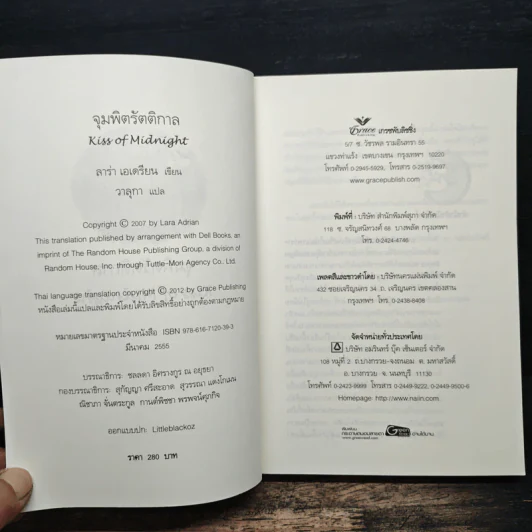 จุมพิตรัตติกาล
Kiss of Midnight
ลาร่า เอเดรียน เขียน
วาลุกา แปล
Copyright © 2007 by Lara Adrian
This translation published by arrangement with Dell Books, an
imprint of The Random House Publishing Group, a division of
Random House, Inc. through Tuttle-Mori Agency Co., Ltd.
Thai language translation copyright © 2012 by Grace Publishing
หนังสือเล่มนี้แปลและพิมพ์โดยได้รับลิขสิทธิ์อย่างถูกต้องตามกฎหมาย
หมายเลขมาตรฐานประจำหนังสือ ISBN 978-616-7120-39-3
มีนาคม 2555
บรรณาธิการ: ชลลดา อิศรางกูร ณ อยุธยา
กองบรรณาธิการ: สุกัญญา ศรีสะอาด สุวรรณา แตงโกเมน
ณิชาภา จั่นตระกูล กานต์พิชชา พรพจน์ศุภกิจ
ออกแบบปก: Littleblackoz
ราคา 280 บาท
Grace เกรซพับลิชชิ่ง
1/7 ซ. วัชรพล รามอินทรา 55
แขวงท่าแร้ง เขตบางเขน กรุงเทพฯ 10220
โทรศัพท์ 0-2945-5929, โทรสาร 0-2519-9697
www.gracepublish.com
พิมพ์ที่: บริษัท สำนักพิมพ์สุภา จำกัด
116 ซ. จรัญสนิทวงศ์ 68 บางพลัด กรุงเทพฯ
โทร. 0-2424-4746
เพลตสีและขาวดำโดย: บริษัทนครแม่พิมพ์ จำกัด
432 ซอยเจริญนคร 34 ถ. เจริญนคร เขตคลองสาน
กรุงเทพฯ โทร. 0-2438-8408
จัดจำหน่ายทั่วประเทศโดย
บริษัท อมรินทร์ บุ๊ค เซ็นเตอร์ จำกัด
108 หมู่ที่ 2 ถ.บางกรวย-จงถนอม ต. มหาสวัสดิ์
อ. บางกรวย จ. นนทบุรี 11130
โทรศัพท์ 0-2423-9999 โทรสาร 0-2449-9222, 0-2449-9500-6
Homepage http://www.naiin.com